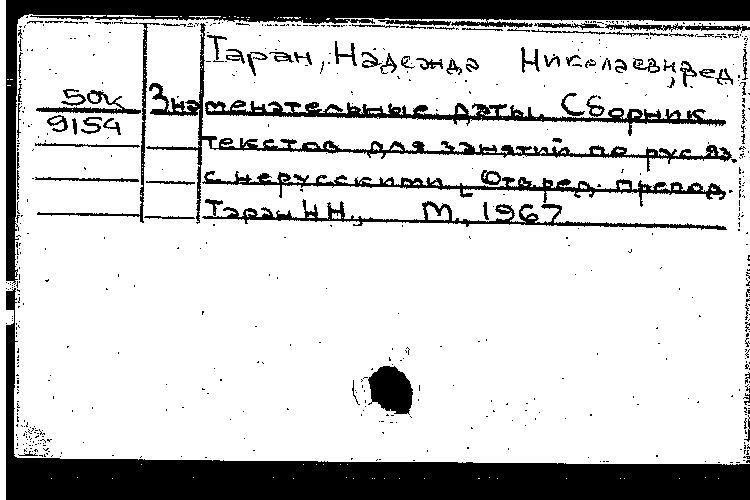 Таран, Надежда Николаевна, ред.
50к Знаменательные даты. Сборник
9154 текстов для занятий по рус. яз.
с нерусскими. Отв. ред. препод.
Таран Н.Н., М., 1967